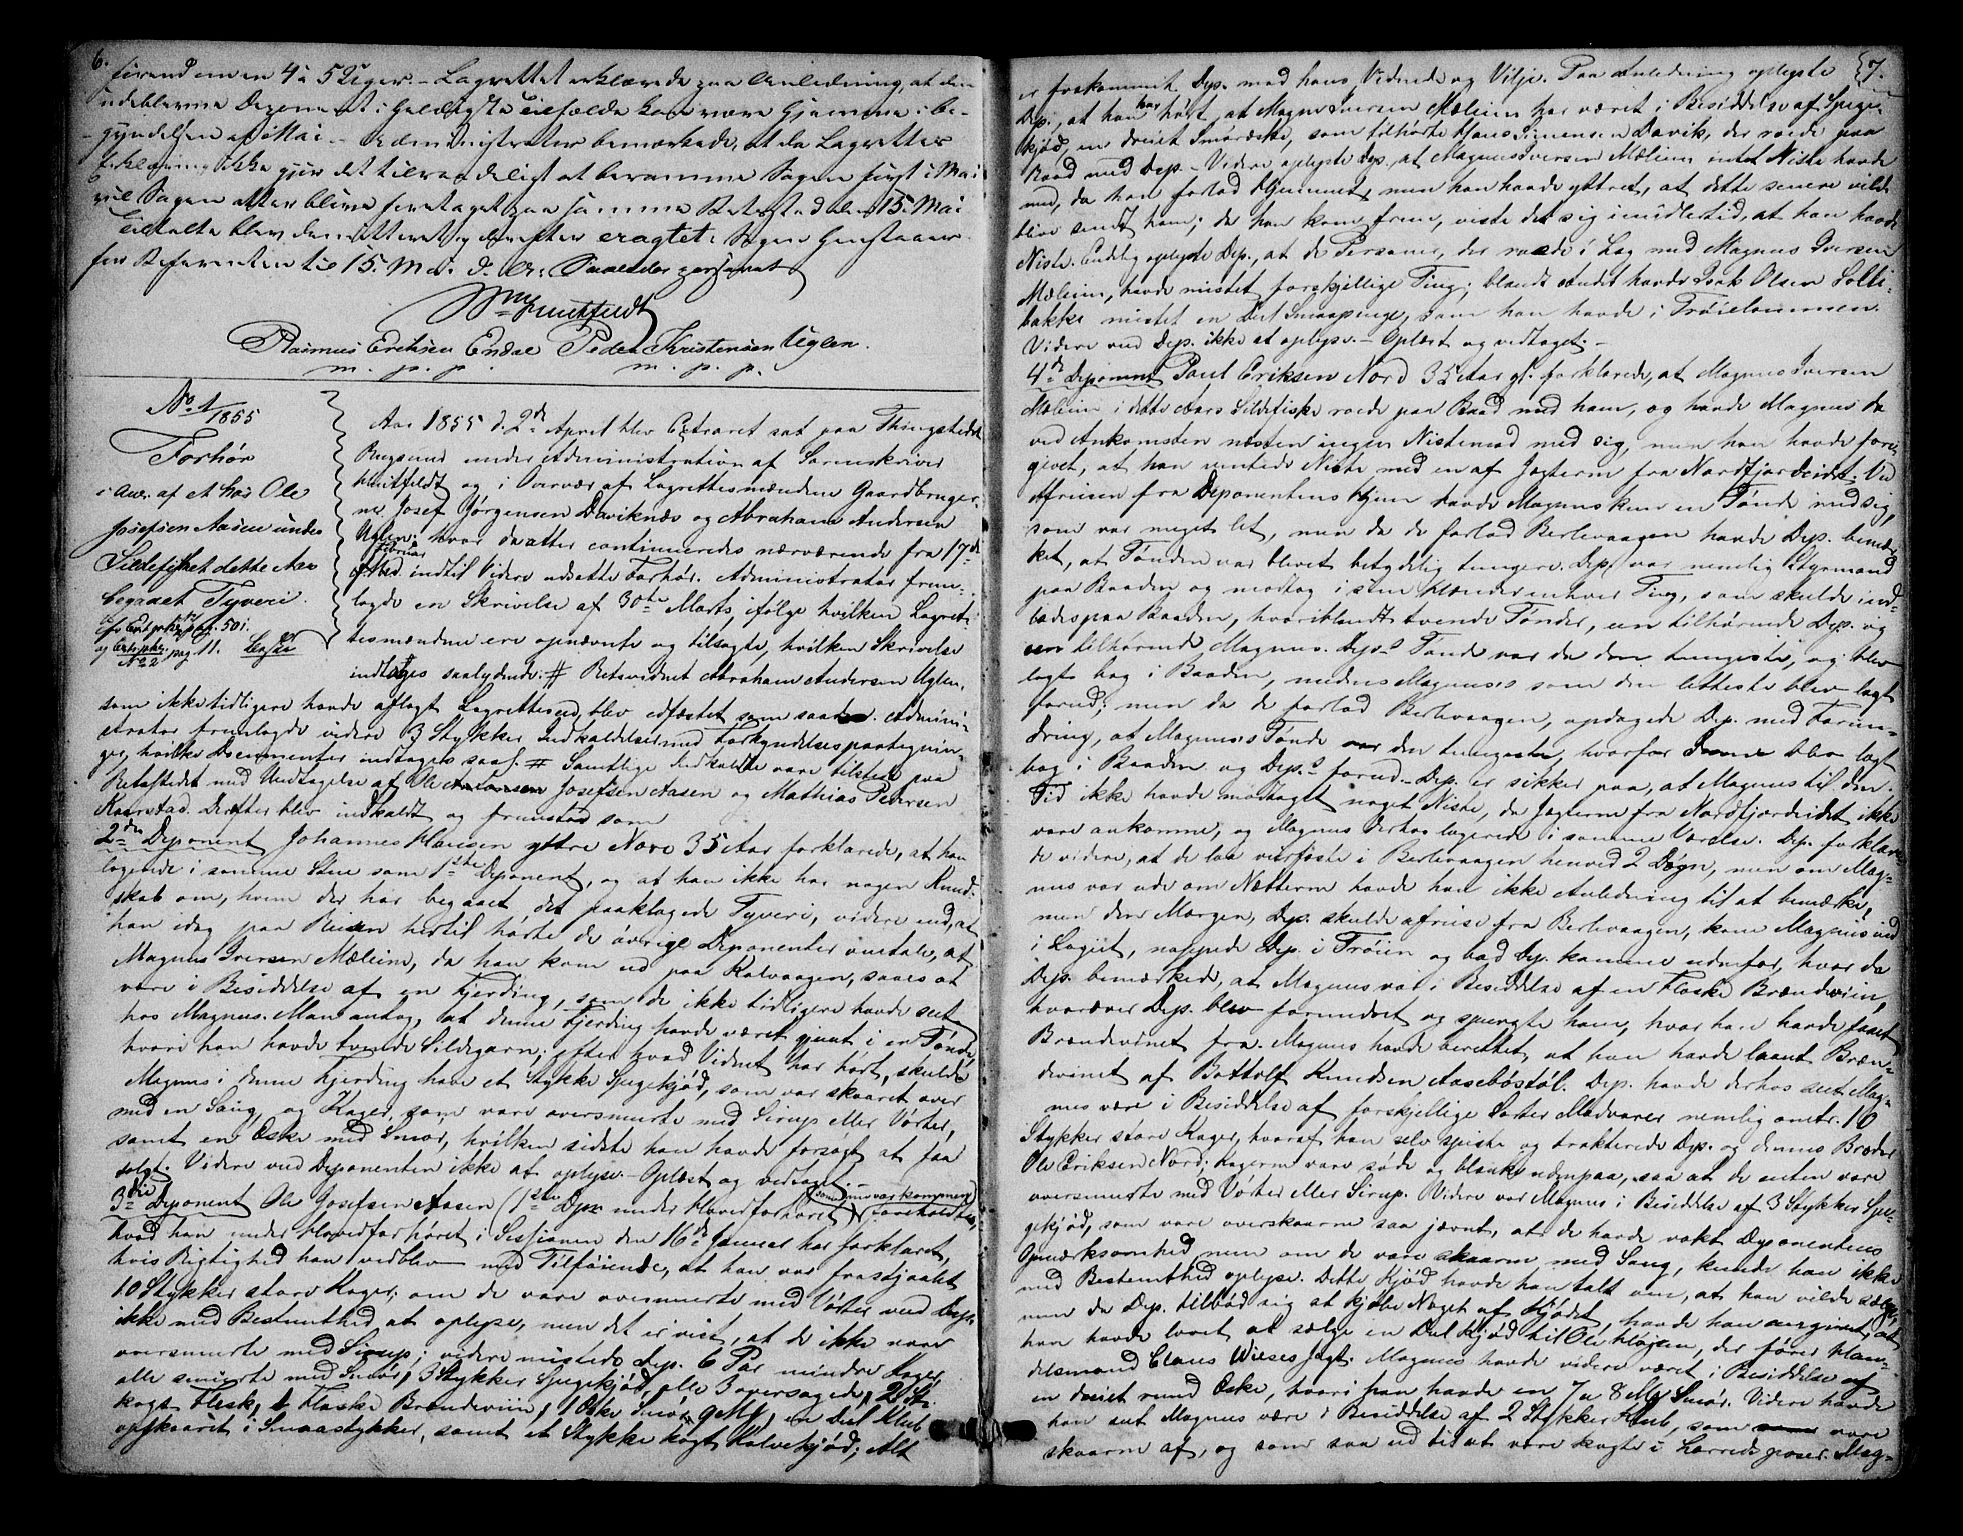 6.
førend om en 4 à 5 Uger. – Lagrettet erklærede paa Anledning, at den
udeblevne Deponent i heldigste Tilfælde kan være hjemme i Be-
gyndelsen af Mai. – Administrator bemærkede, at da Lagrettes
Erklæring ikke gjør det tilraadeligt at beramme Sagen først i Mai
vil Sagen atter blive foretaget paa samme Retssted den 15. Mai
Tiltalte blev demitteret og derefter eragtet: Sagen henstaaer
for Referenten til 15. Mai d. A. Saaledes passeret
Wm Huitfeldt
Rasmus Erichsen Endal Peder Kristensen Uglen.
m. p. p. m. p. p.
No 1/1855
Forhør
i Anl. af et hos Ole
Josefsen Aasen under
Sildefisket dette Aar
begaaet Tyveri.
cfr Extrprt. pag. 501.
og Extrprt. No 2 pag 11.
Aar 1855 d. 2den April blev Extraret sat paa Thingstedet
Rugsund under Administration af Sorenskriver
Huitfeldt og i Overvær af Lagrettesmændene Gaardbruger-
ne Josef Jørgensen Daviknæs og Abraham Andersen
Uglen; hvor da atter continueredes nærværende fra 17de
Februar
f. Md. indtil Videre udsatte Forhør. Administrator frem-
lagde en Skrivelse af 30te Marts, ifølge hvilken Lagret-
tesmændene ere opnævnte og tilsagte, hvilken Skrivelse
indtages saalydende: # Retsvidnet Abraham Andersen Uglen,
som ikke tidligere havde aflagt Lagretteseed, blev edfæstet som saadan. Admini-
strator fremlagde videre 3 Stykker Indkaldelser med Forkyndelsespaategnin-
ger, hvilke Documenter indtages saal. # Samtlige Indkaldte vare tilstede paa
Retsstedet med Undtagelse af Ole Josefsen Aasen og Mathias Petersen
Kaarstad. Derefter blev indkaldt og fremstod som
2den Deponent Johannes Hansen yttre Nore 35 Aar forklarede, at han
logerede i samme Stue som 1ste Deponent, og at han ikke har nogen Kund-
skab om, hvem der har begaaet det paaklagede Tyveri, videre end, at
han idag paa Reisen hertil hørte de øvrige Deponenter omtale, at
Magnus Iversen Mæleim, da han kom ud paa Kalvaagen, saaes at
være i Besiddelse af en Fjerding, som de ikke tidligere havde seet
hos Magnus. Man antog, at denne Fjerding havde været gjemt i en Tønde,
hvori han havde tvende Sildegarn; efter hvad Vidnet har hørt, skulde
Magnus i denne Fjerding have et Stykke Spegekjød, som var skaaret over
med en Saug, og Kager, som vare oversmurte med Sirup eller Vørter,
samt en Æske med Smør, hvilken sidste han havde forsøgt at faa
solgt. Videre veed Deponenten ikke at oplyse. – Oplæst og vedtaget. –
3die Deponent Ole Josefsen Aasen (1ste Depn under Hovedforhøret) som nu var kommen foreholdtes,
hvad han under Hovedforhøret i Sessionen den 16de Januar har forklaret,
hvis Rigtighed han vedblev med Tilføiende, at han var frastjaalet
10 Stykker store Kager; om de vare oversmurte med Vørter veed Dep.
ikke med Bestemthed at oplyse, men det er vist, at de ikke vare
oversmurte med Sirup; videre mistede Dep. 6 Par mindre Kager,
alle smurte med Smør, 3 Stykker Spegekjød, alle 3 oversagede, 2 St.
kogt Flesk, 1 Flaske Brændeviin, 1 Æske Smør 9 Mk, en Deel Klub
opskaaret i Smaastykker, samt et Stykke kogt Kalvekjød; Alt
7.
er frakommet Dep. mod hans Vidende og Vilje. Paa Anledning oplyste
Dep., at han har hørt, at Magnus Iversen Mæleim har været i Besiddelse af Spege-
kjød, en dreiet Smøræske, som tilhørte Hans Simensen Davik, der roede paa
Baad med Dep. – Videre oplyste Dep., at Magnus Iversen Mæleim intet Niste havde
med, da han forlod Hjemmet, men han havde yttret, at dette senere vilde
blive sendt ham; da han kom frem, viste det sig imidlertid, at han havde
Niste. Endelig oplyste Dep., at de Personer, der roede i Lag med Magnus Iversen
Mæleim, havde mistet forskjellige Ting; blandt andet havde Isak Olsen Solli-
bakke mistet en Deel Smaapenge, som han havde i Trøielommen.
Videre veed Dep. ikke at oplyse. – Oplæst og vedtaget. –
4de Deponent Paul Eriksen Nord 35 Aar gl. forklarede, at Magnus Iversen
Mæleim i dette Aars Sildefiske roede paa Baad med ham, og havde Magnus da
ved Ankomsten næsten ingen Nistemad med sig, men han havde fore-
givet, at han ventede Niste med en af Jagterne fra Nordfjordeidet. Ved
Afreisen fra Deponentens Hjem havde Magnus kun en Tønde med sig,
som var meget let, men da de forlod Berlevaagen havde Dep. bemær-
ket, at Tønden var blevet betydelig tungere. Dep. var nemlig Styrmand
paa Baaden og modtog i sine Hænder enhver Ting, som skulde ind-
lades paa Baaden, hvoriblandt tvende Tønder, en tilhørende Dep. og
een tilhørende Magnus. Dep.s Tønde var da den tungeste, og blev
lagt bag i Baaden, medens Magnuses som den letteste blev lagt
forud; men da de forlod Berlevaagen, opdagede Dep. med Forun-
dring, at Magnuses Tønde var den tungeste, hvorfor denne blev lagt
bag i Baaden og Dep.s forud. – Dep. er sikker paa, at Magnus til den
Tid ikke havde modtaget noget Niste, da Jagterne fra Nordfjordeidet ikke
vare ankomne, og Magnus derhos logerede i samme Værelse. Dep. forklare-
de videre, at de laa veirfaste i Berlevaagen henved 2 Døgn, men om Mag-
nus var ude om Nætterne havde han ikke Anledning til at bemærke,
men den Morgen, Dep. skulde afreise fra Berlevaagen, kom Magnus ind
i Logiet, nappede Dep. i Trøien og bad Dep. komme udenfor, hvor da
Dep. bemærkede, at Magnus var i Besiddelse af en Flaske Brændeviin,
hvorover Dep. blev forundret og spurgte ham, hvor han havde faaet
Brændevinet fra. Magnus havde berettet, at han havde laant Bræn-
devinet af Bottolf Knudsen Aasebøstøl. Dep. havde derhos seet Mag-
nus være i Besiddelse af forskjellige Sorter Madvarer nemlig omtr. 10
Stykker store Kager, hvoraf han selv spiste og trakterede Dep. og dennes Broder
Ole Eriksen Nord; Kagerne vare søde og blanke udenpaa, saa at de enten vare
oversmurte med Vørter eller Sirup. Videre var Magnus i Besiddelse af 3 Stykker Spe-
gekjød, som vare overskaarne saa jævnt, at de havde vakt Deponentens
Opmærksomhed men om de vare skaarne med Saug, kunde han ikke
med Bestemthed oplyse. Dette Kjød havde han talt om, at han vilde sælge,
men da Dep. tilbød sig at kjøbe Noget af Kjødet, havde han angivet, at
han havde lovet at sælge en Deel Kjød til Ole Høgen, der fører Han-
delsmand Claus Wieses Jagt. Magnus havde videre været i Besiddelse af
en dreiet rund Æske, hvori han havde en 7 a 8 Mk Smør. Videre havde
han seet Magnus være i Besiddelse af 2 Stykker Klub, som vare
skaarne af, og som saa ud til at være kogte i Lærredsposer. Mag-